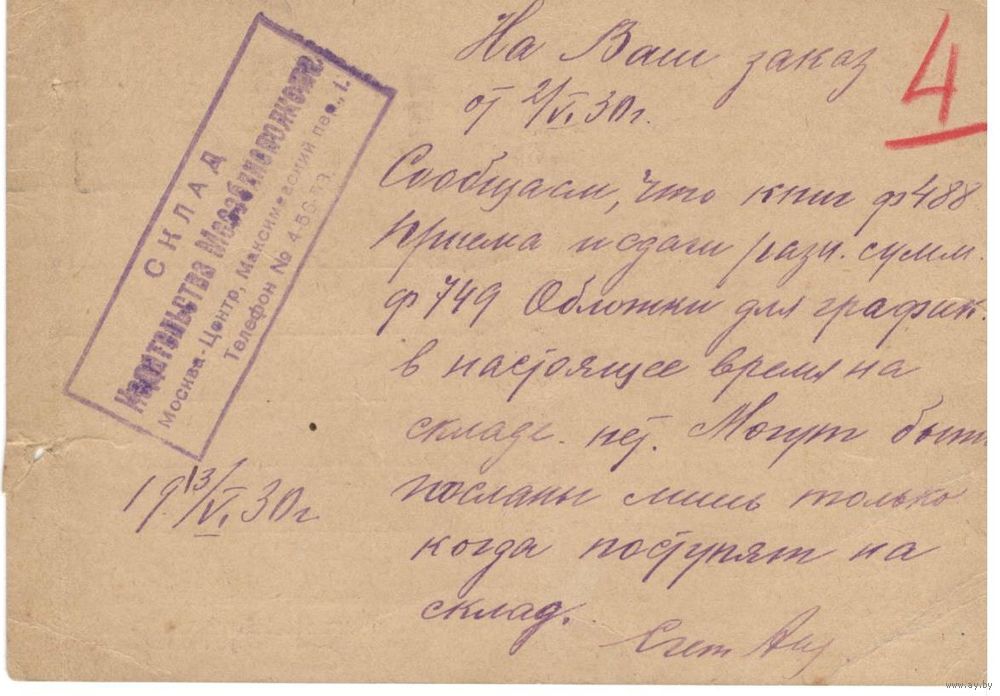 На Ваш заказ
от 2/VI 30 г.
4
СКЛАД
Издательства Мособлисполкома
Москва-Центр, Максимовский пер., 1.
Телефон № 4-56-
Сообщаем, что книг ф 488
приема и сдачи разн. сумм.
ф 749 Обложки для график.
в настоящее время на
складе. нет. Могут быть
посланы лишь только
когда поступят на
склад.
13/VI 30 г
www.ay.by